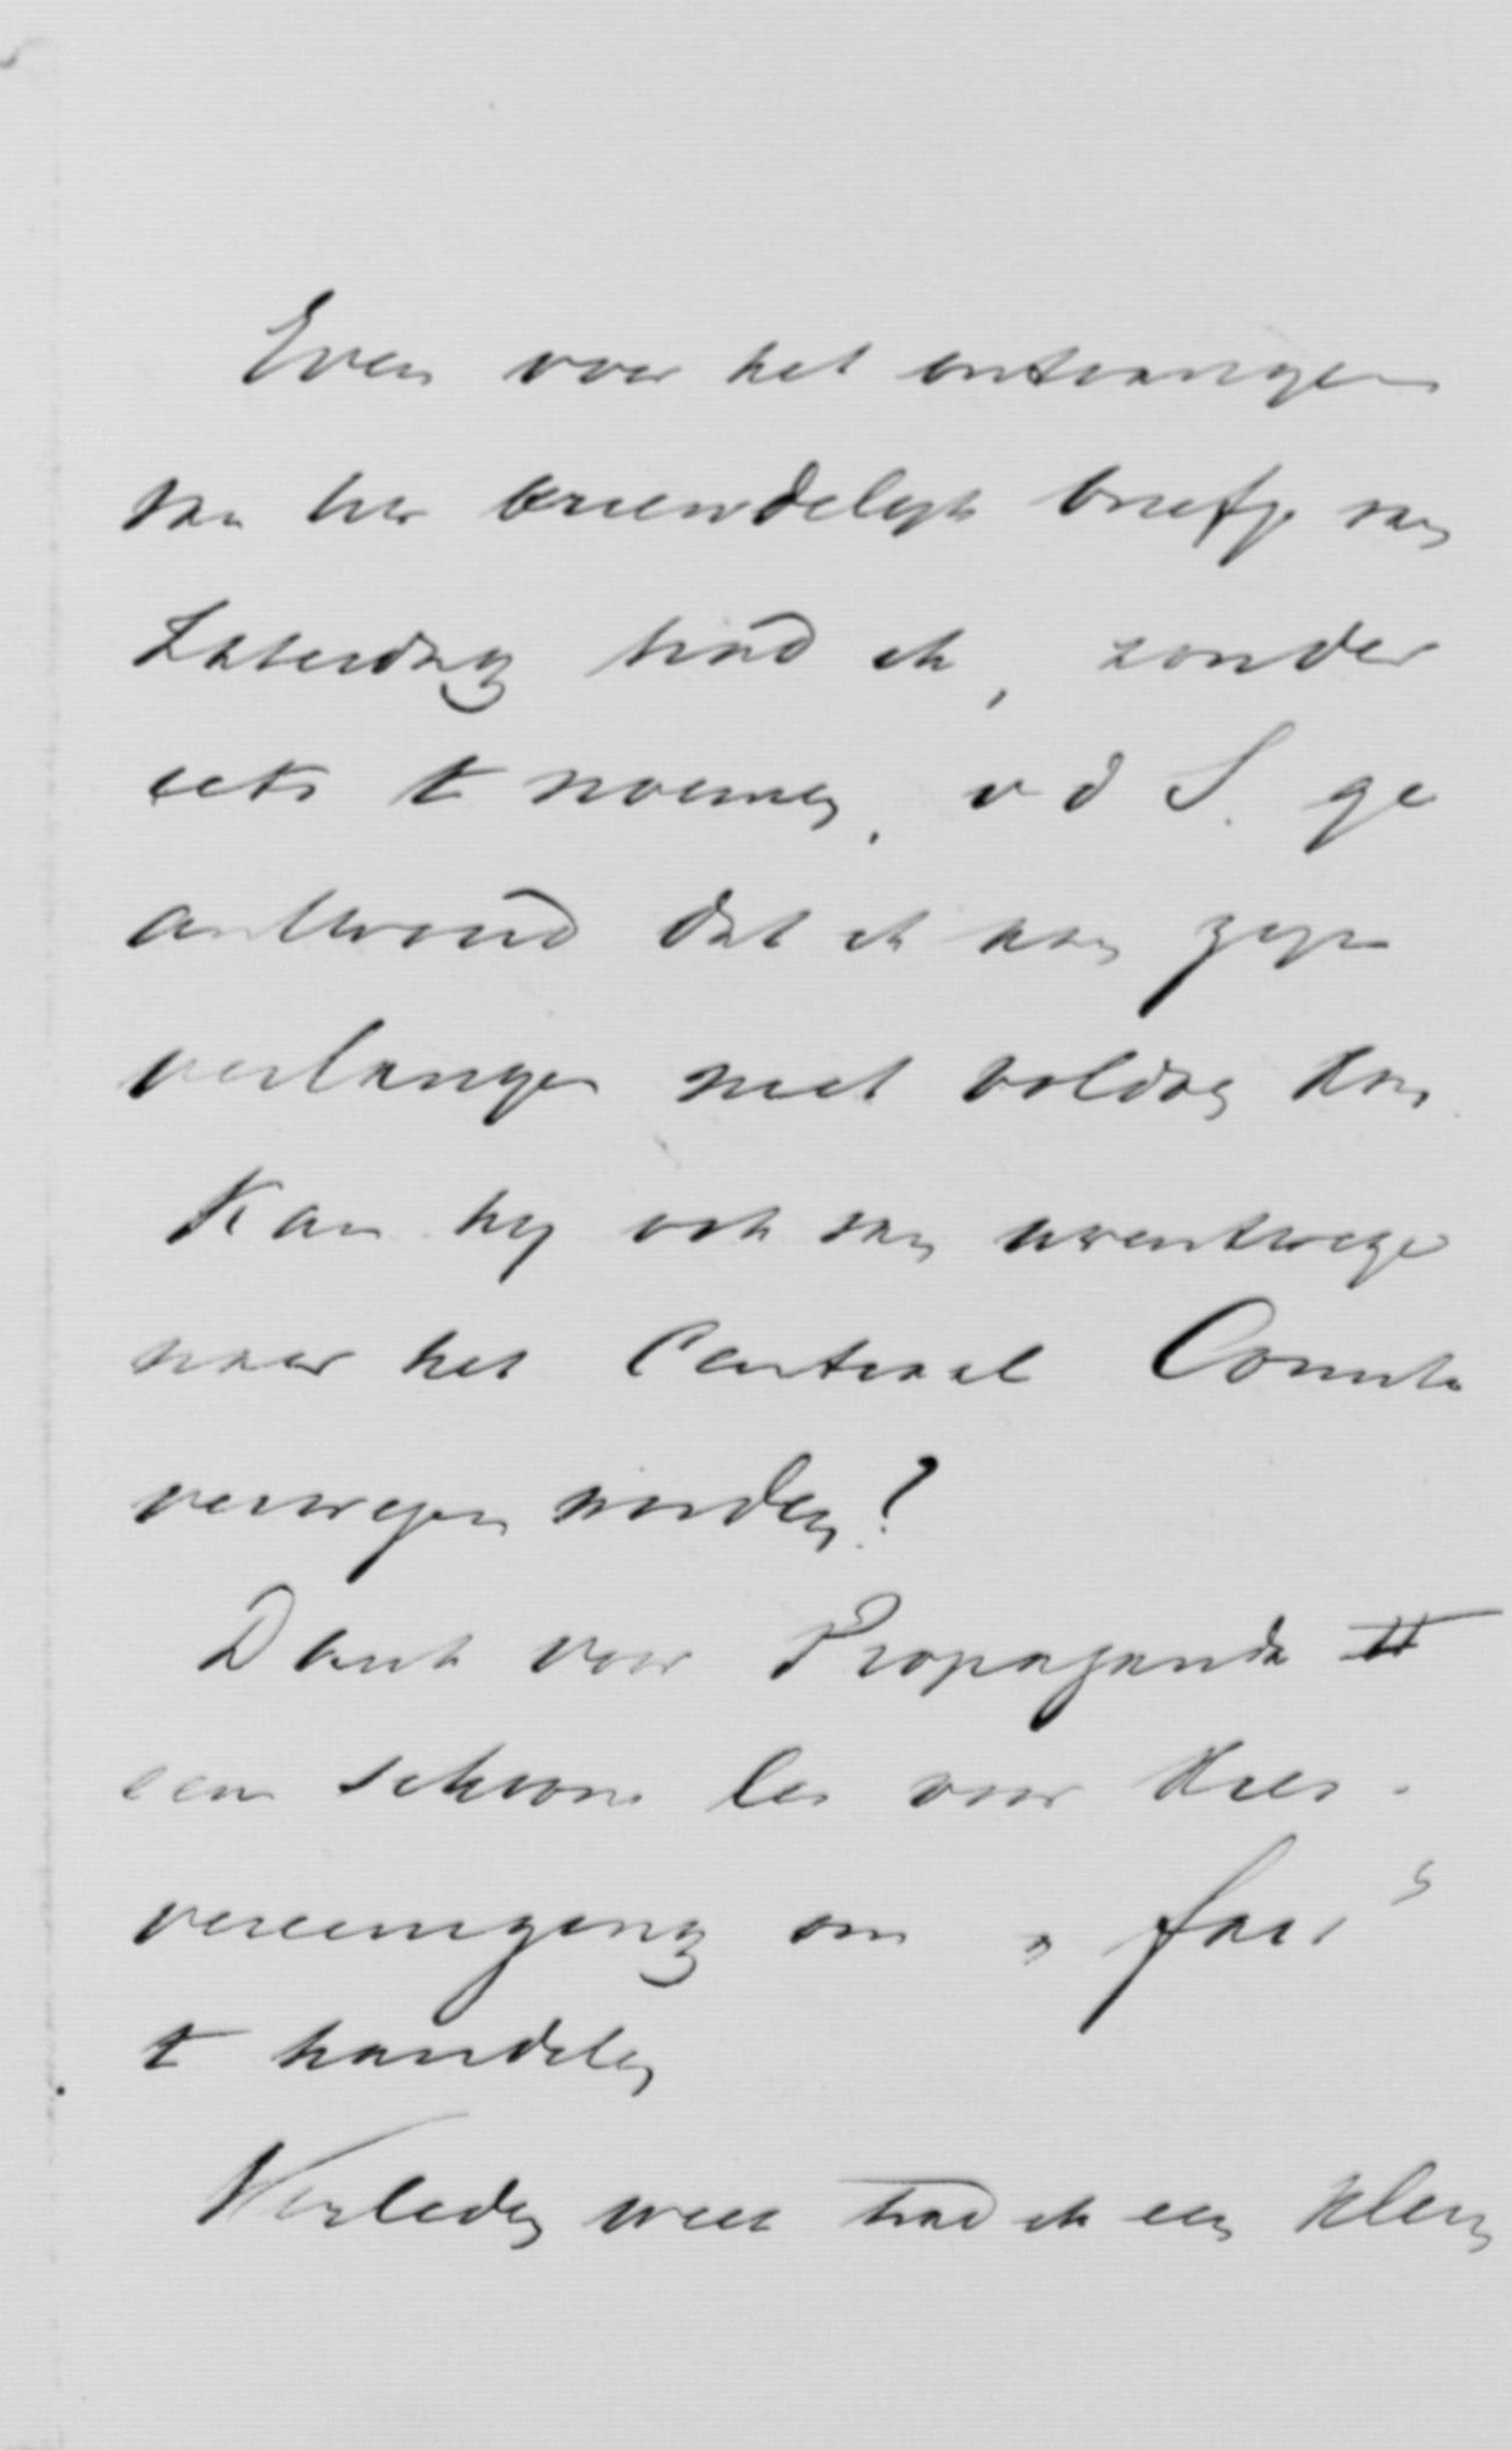 Even voor het ontvangen
van Uw vriendelijk briefje van
Zaterdag had ik, zonder
iets te noemen, v d S. ge
antwoord dat ik aan zijn
verlangen niet voldoen kon
Kan hij ook van uwentwege
naar het Centraal Comité
verwezen worden?
Dank voor Propaganda II
een schoone les voor Kies-
vereeniging om „fair"
te handelen
Verleden week had ik een klein